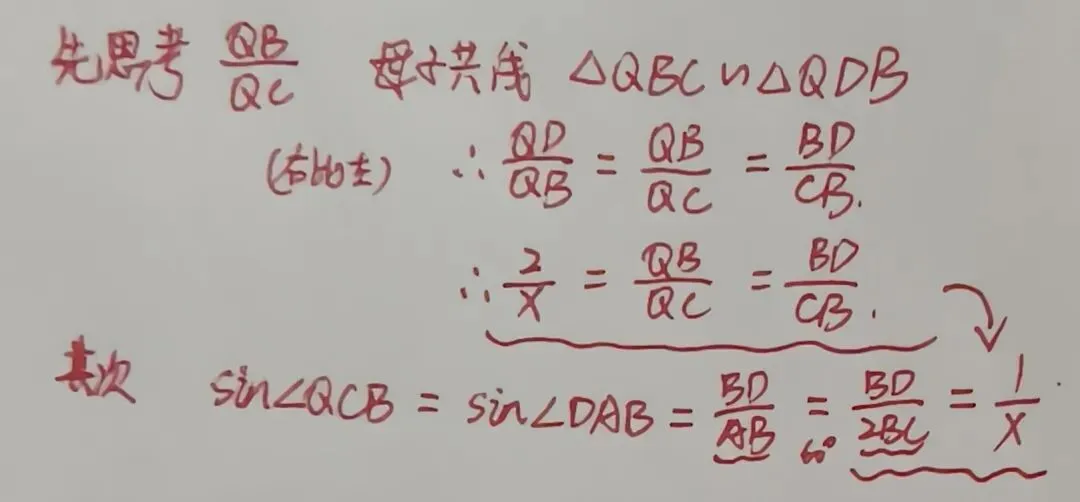 先思考 QB/QC 母子共线 △QBC∽△QDB
(右比左) ∴ QD/QB = QB/QC = BD/CB.
∴ 2/x = QB/QC = BD/CB.
其次 sin∠QCB = sin∠DAB = BD/AB = 60° BD/2BC = 1/x